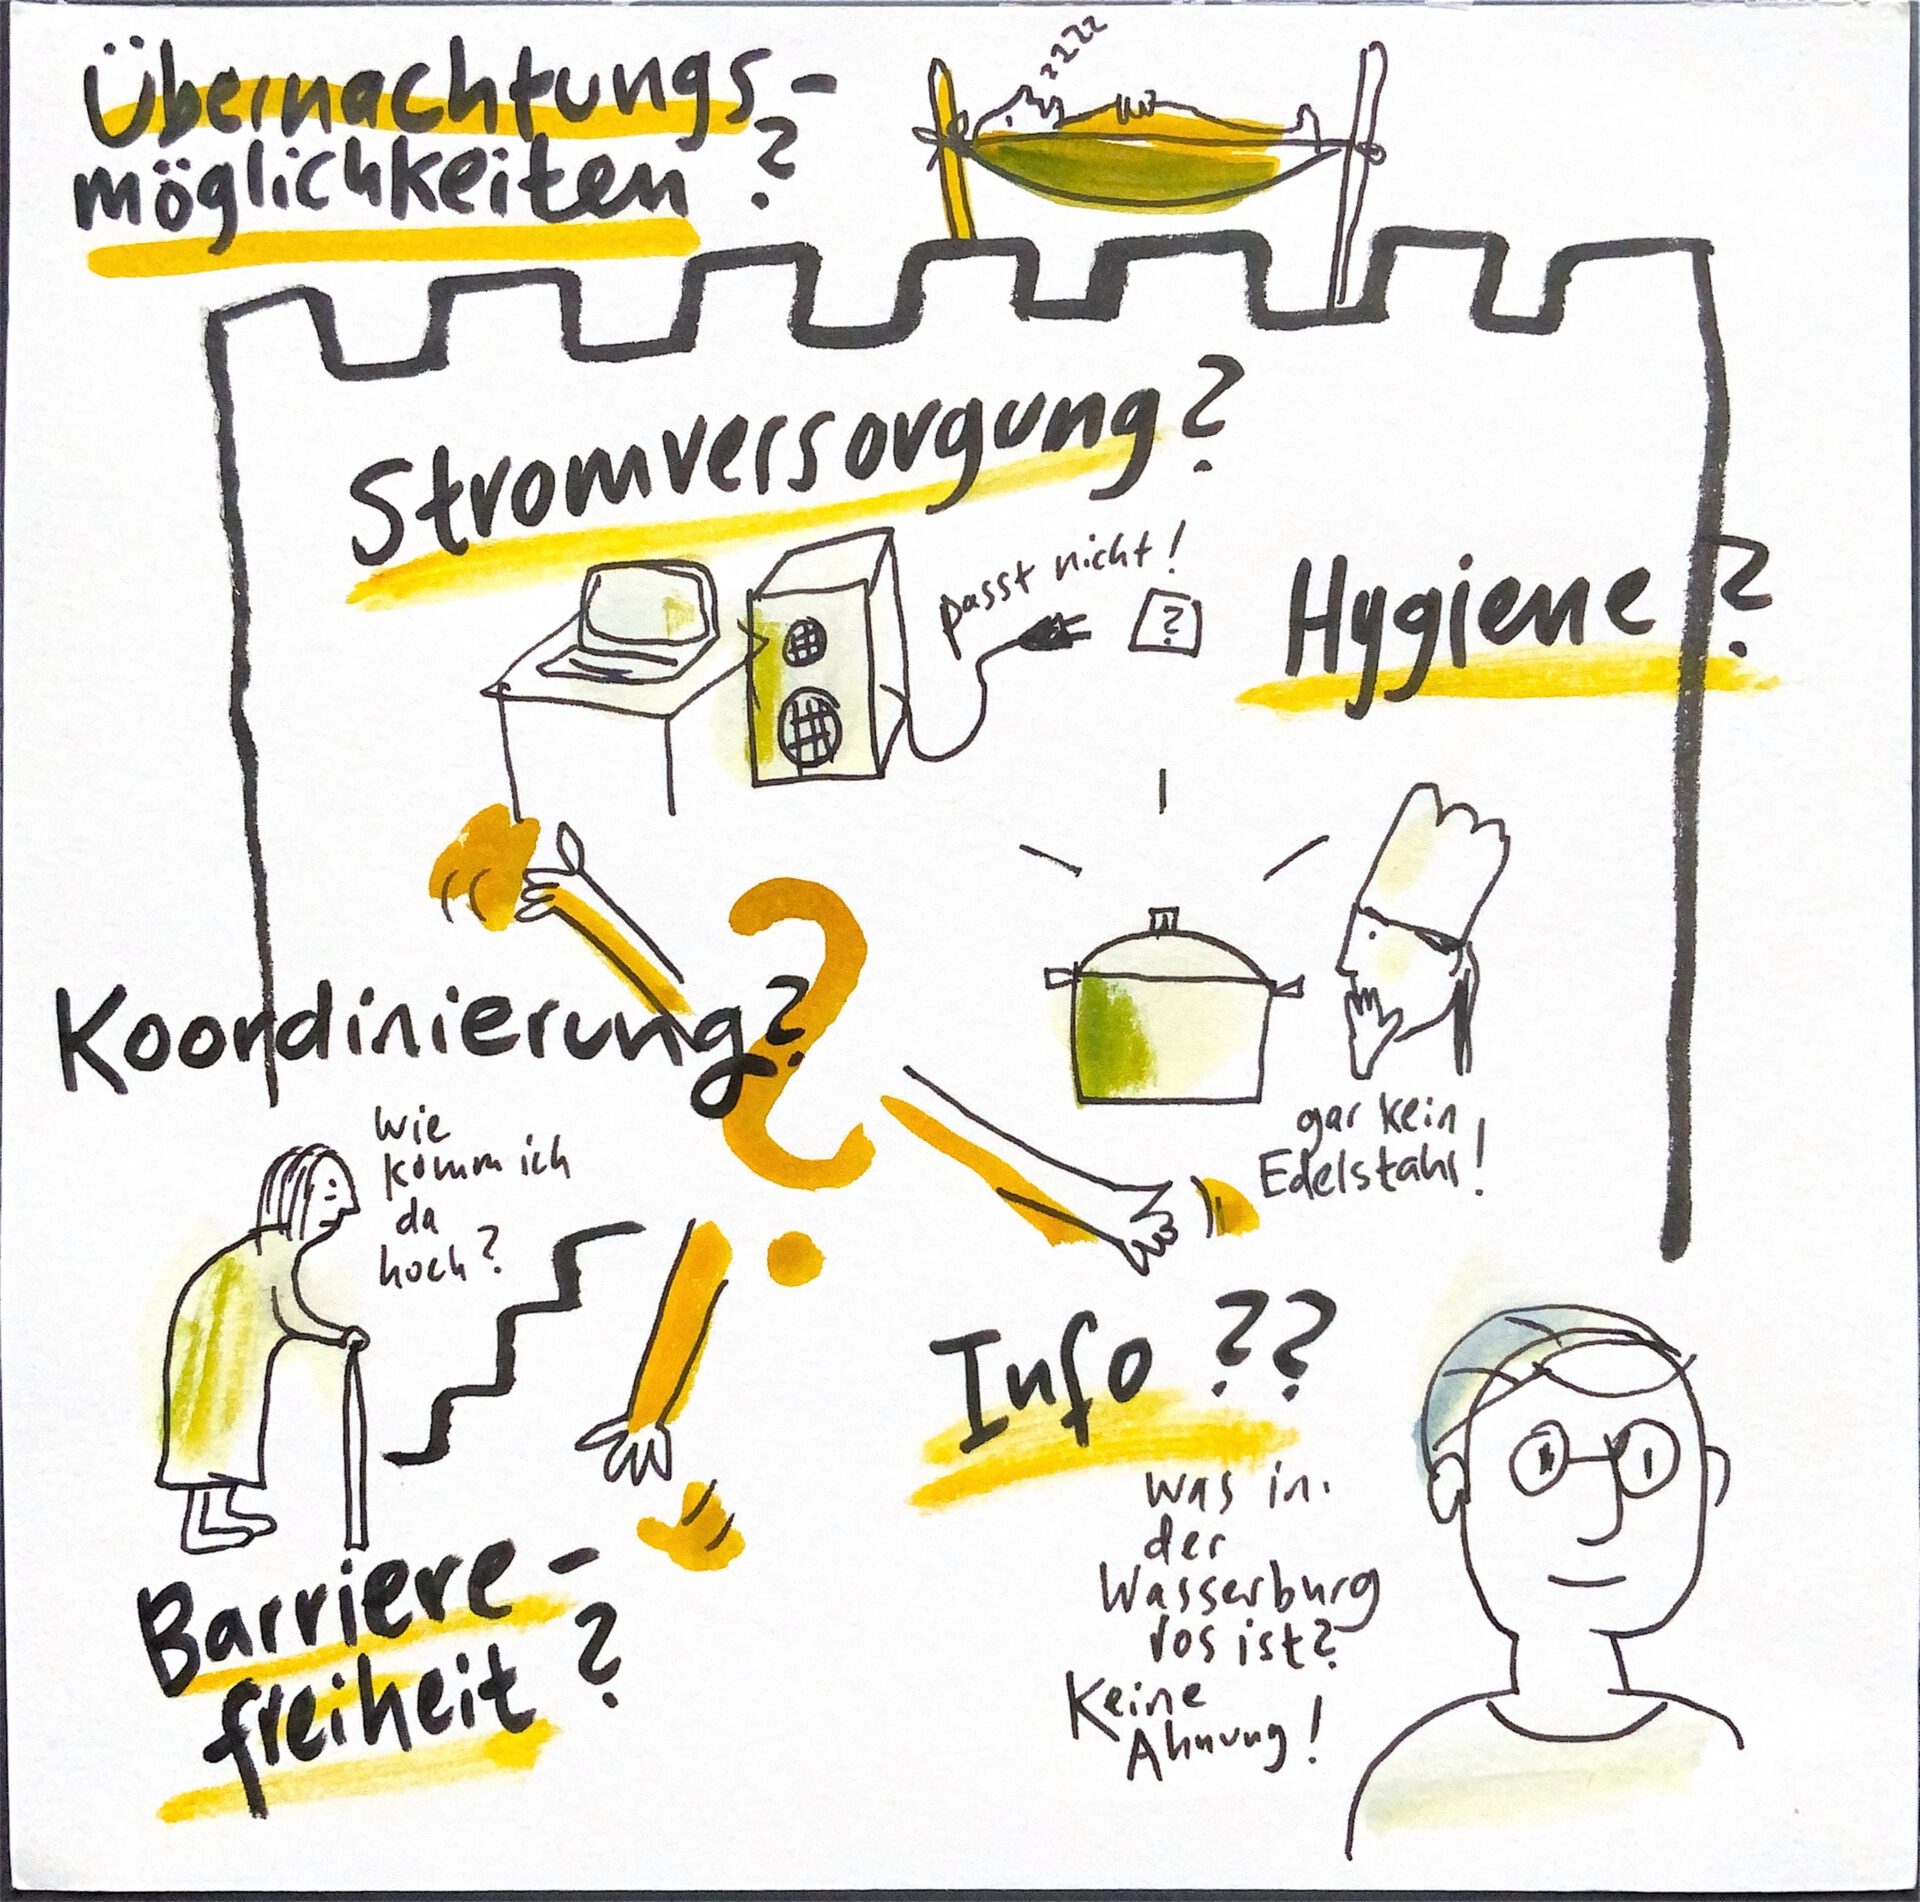 Übernachtungs-
möglichkeiten?
zzzz
Stromversorgung?
passt nicht!
?
Hygiene?
Koordinierung?
?
gar kein
Edelstahl!
wie
komm ich
da
hoch?
Info??
was in
der
Wasserburg
los ist?
Keine
Ahnung!
Barriere-
freiheit?